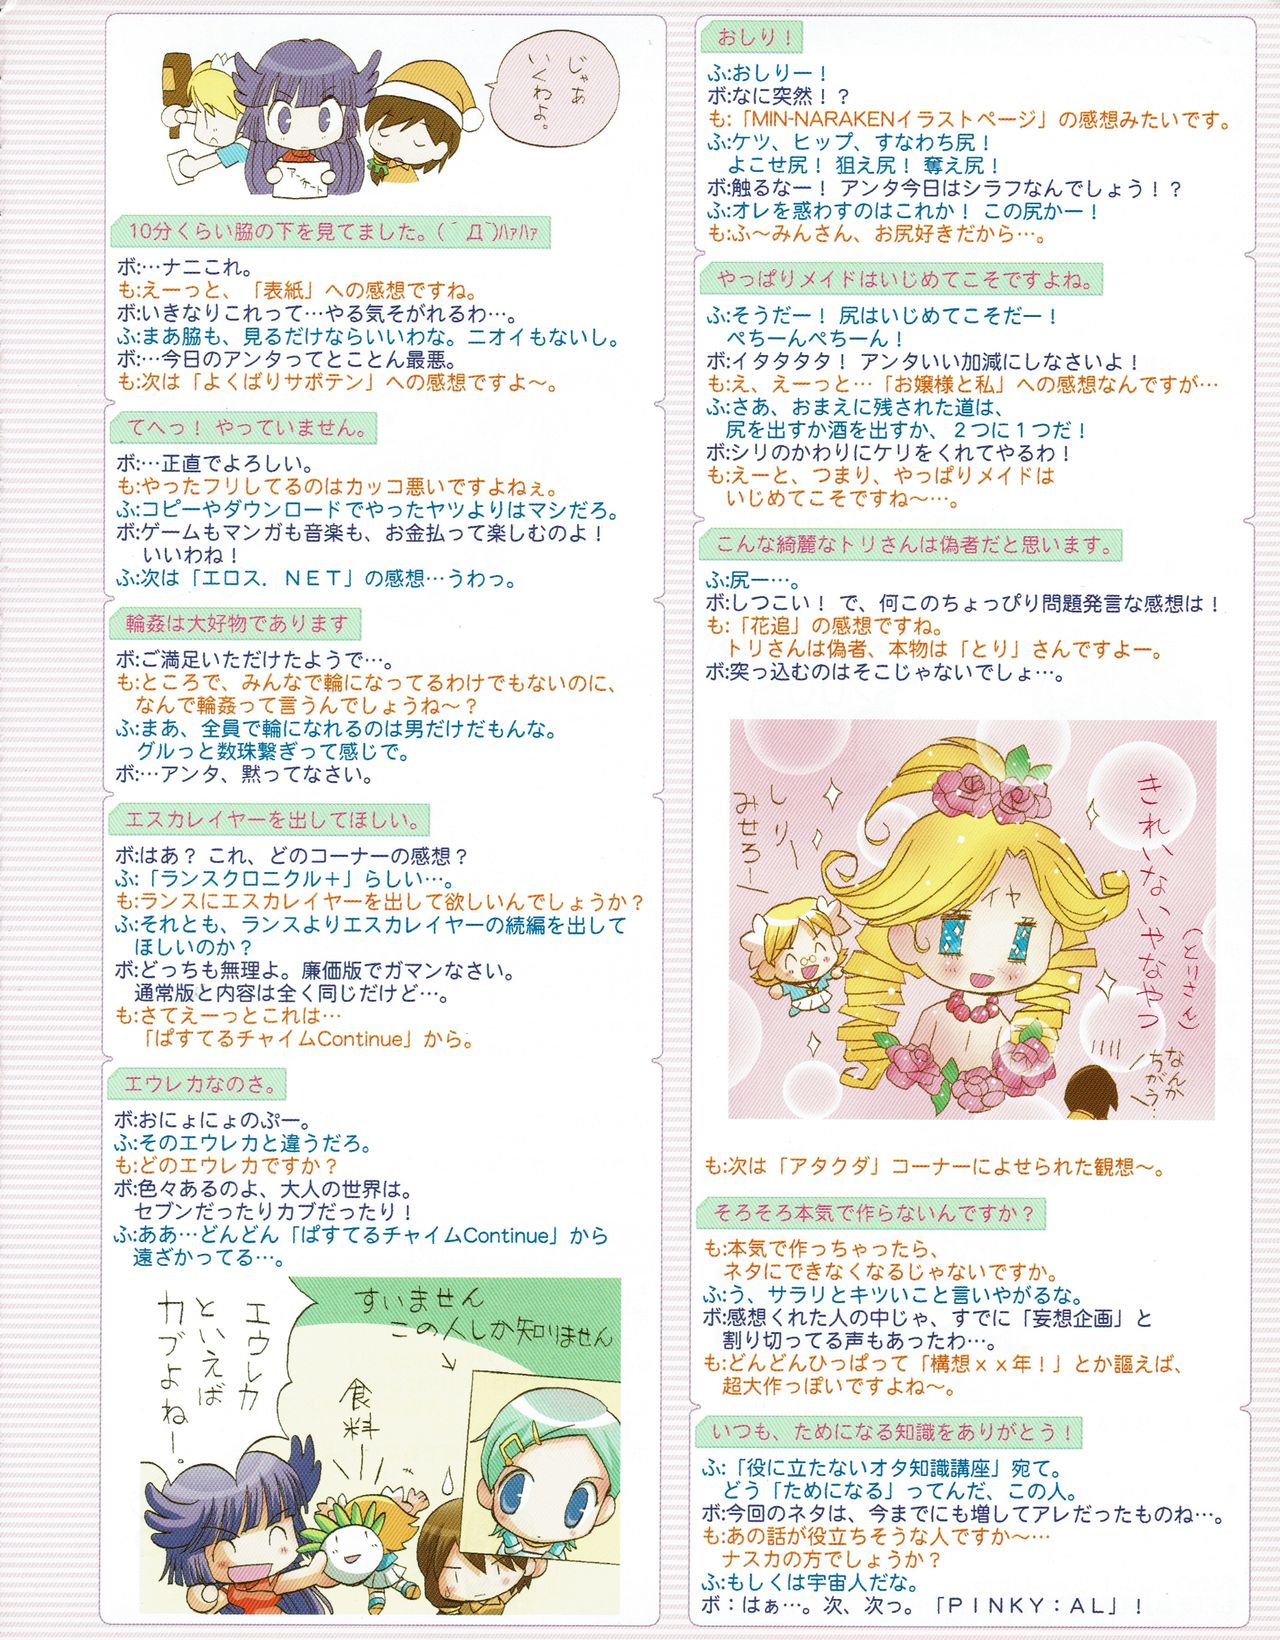 じゃあ
いくわよ。
アンケート
10分くらい脇の下を見てました。(´Д`)ﾊｧﾊｧ
ボ:…ナニこれ。
も:えーっと、「表紙」への感想ですね。
ボ:いきなりこれって…やる気そがれるわ…。
ふ:まあ脇も、見るだけならいいわな。ニオイもないし。
ボ:…今日のアンタってとことん最悪。
も:次は「よくばりサボテン」への感想ですよ〜。
てへっ！ やっていません。
ボ:…正直でよろしい。
も:やったフリしてるのはカッコ悪いですよねぇ。
ふ:コピーやダウンロードでやったヤツよりはマシだろ。
ボ:ゲームもマンガも音楽も、お金払って楽しむのよ！
いいわね！
ふ:次は「エロス．ＮＥＴ」の感想…うわっ。
輪姦は大好物であります
ボ:ご満足いただけたようで…。
も:ところで、みんなで輪になってるわけでもないのに、
なんで輪姦って言うんでしょうね〜？
ふ:まあ、全員で輪になれるのは男だけだもんな。
グルっと数珠繋ぎって感じで。
ボ:…アンタ、黙ってなさい。
エスカレイヤーを出してほしい。
ボ:はあ？ これ、どのコーナーの感想？
ふ:「ランスクロニクル＋」らしい…。
も:ランスにエスカレイヤーを出して欲しいんでしょうか？
ふ:それとも、ランスよりエスカレイヤーの続編を出して
ほしいのか？
ボ:どっちも無理よ。廉価版でガマンなさい。
通常版と内容は全く同じだけど…。
も:さてえーっとこれは…
「ぱすてるチャイムContinue」から。
エウレカなのさ。
ボ:おにょにょのぷー。
ふ:そのエウレカと違うだろ。
も:どのエウレカですか？
ボ:色々あるのよ、大人の世界は。
セブンだったりカブだったり！
ふ:ああ…どんどん「ぱすてるチャイムContinue」から
遠ざかってる…。
エウレカ
といえば
カブよね！
すいません
この人しか知りません
食料
おしり！
ふ:おしりー！
ボ:なに突然！？
も:「MIN-NARAKENイラストページ」の感想みたいです。
ふ:ケツ、ヒップ、すなわち尻！
よこせ尻！ 狙え尻！ 奪え尻！
ボ:触るなー！ アンタ今日はシラフなんでしょう！？
ふ:オレを惑わすのはこれか！ この尻かー！
も:ふ〜みんさん、お尻好きだから…。
やっぱりメイドはいじめてこそですよね。
ふ:そうだー！ 尻はいじめてこそだー！
ぺちーんぺちーん！
ボ:イタタタタ！ アンタいい加減にしなさいよ！
も:え、えーっと…「お嬢様と私」への感想なんですが…
ふ:さあ、おまえに残された道は、
尻を出すか酒を出すか、２つに１つだ！
ボ:シリのかわりにケリをくれてやるわ！
も:えーと、つまり、やっぱりメイドは
いじめてこそですね〜…。
こんな綺麗なトリさんは偽者だと思います。
ふ:尻ー…。
ボ:しつこい！ で、何このちょっぴり問題発言な感想は！
も:「花追」の感想ですね。
トリさんは偽者、本物は「とり」さんですよー。
ボ:突っ込むのはそこじゃないでしょ…。
しりー
みせろー
イヤ
きれいないやなやつ
（とりさん）
なんか
ちがう…
も:次は「アタクダ」コーナーによせられた観想〜。
そろそろ本気で作らないんですか？
も:本気で作っちゃったら、
ネタにできなくなるじゃないですか。
ふ:う、サラリとキツいこと言いやがるな。
ボ:感想くれた人の中じゃ、すでに「妄想企画」と
割り切ってる声もあったわ…。
も:どんどんひっぱって「構想ｘｘ年！」とか謳えば、
超大作っぽいですよね〜。
いつも、ためになる知識をありがとう！
ふ:「役に立たないオタ知識講座」宛て。
どう「ためになる」ってんだ、この人。
ボ:今回のネタは、今までにも増してアレだったものね…。
も:あの話が役立ちそうな人ですか〜…
ナスカの方でしょうか？
ふ:もしくは宇宙人だな。
ボ：はぁ…。次、次っ。「ＰＩＮＫＹ：ＡＬ」！